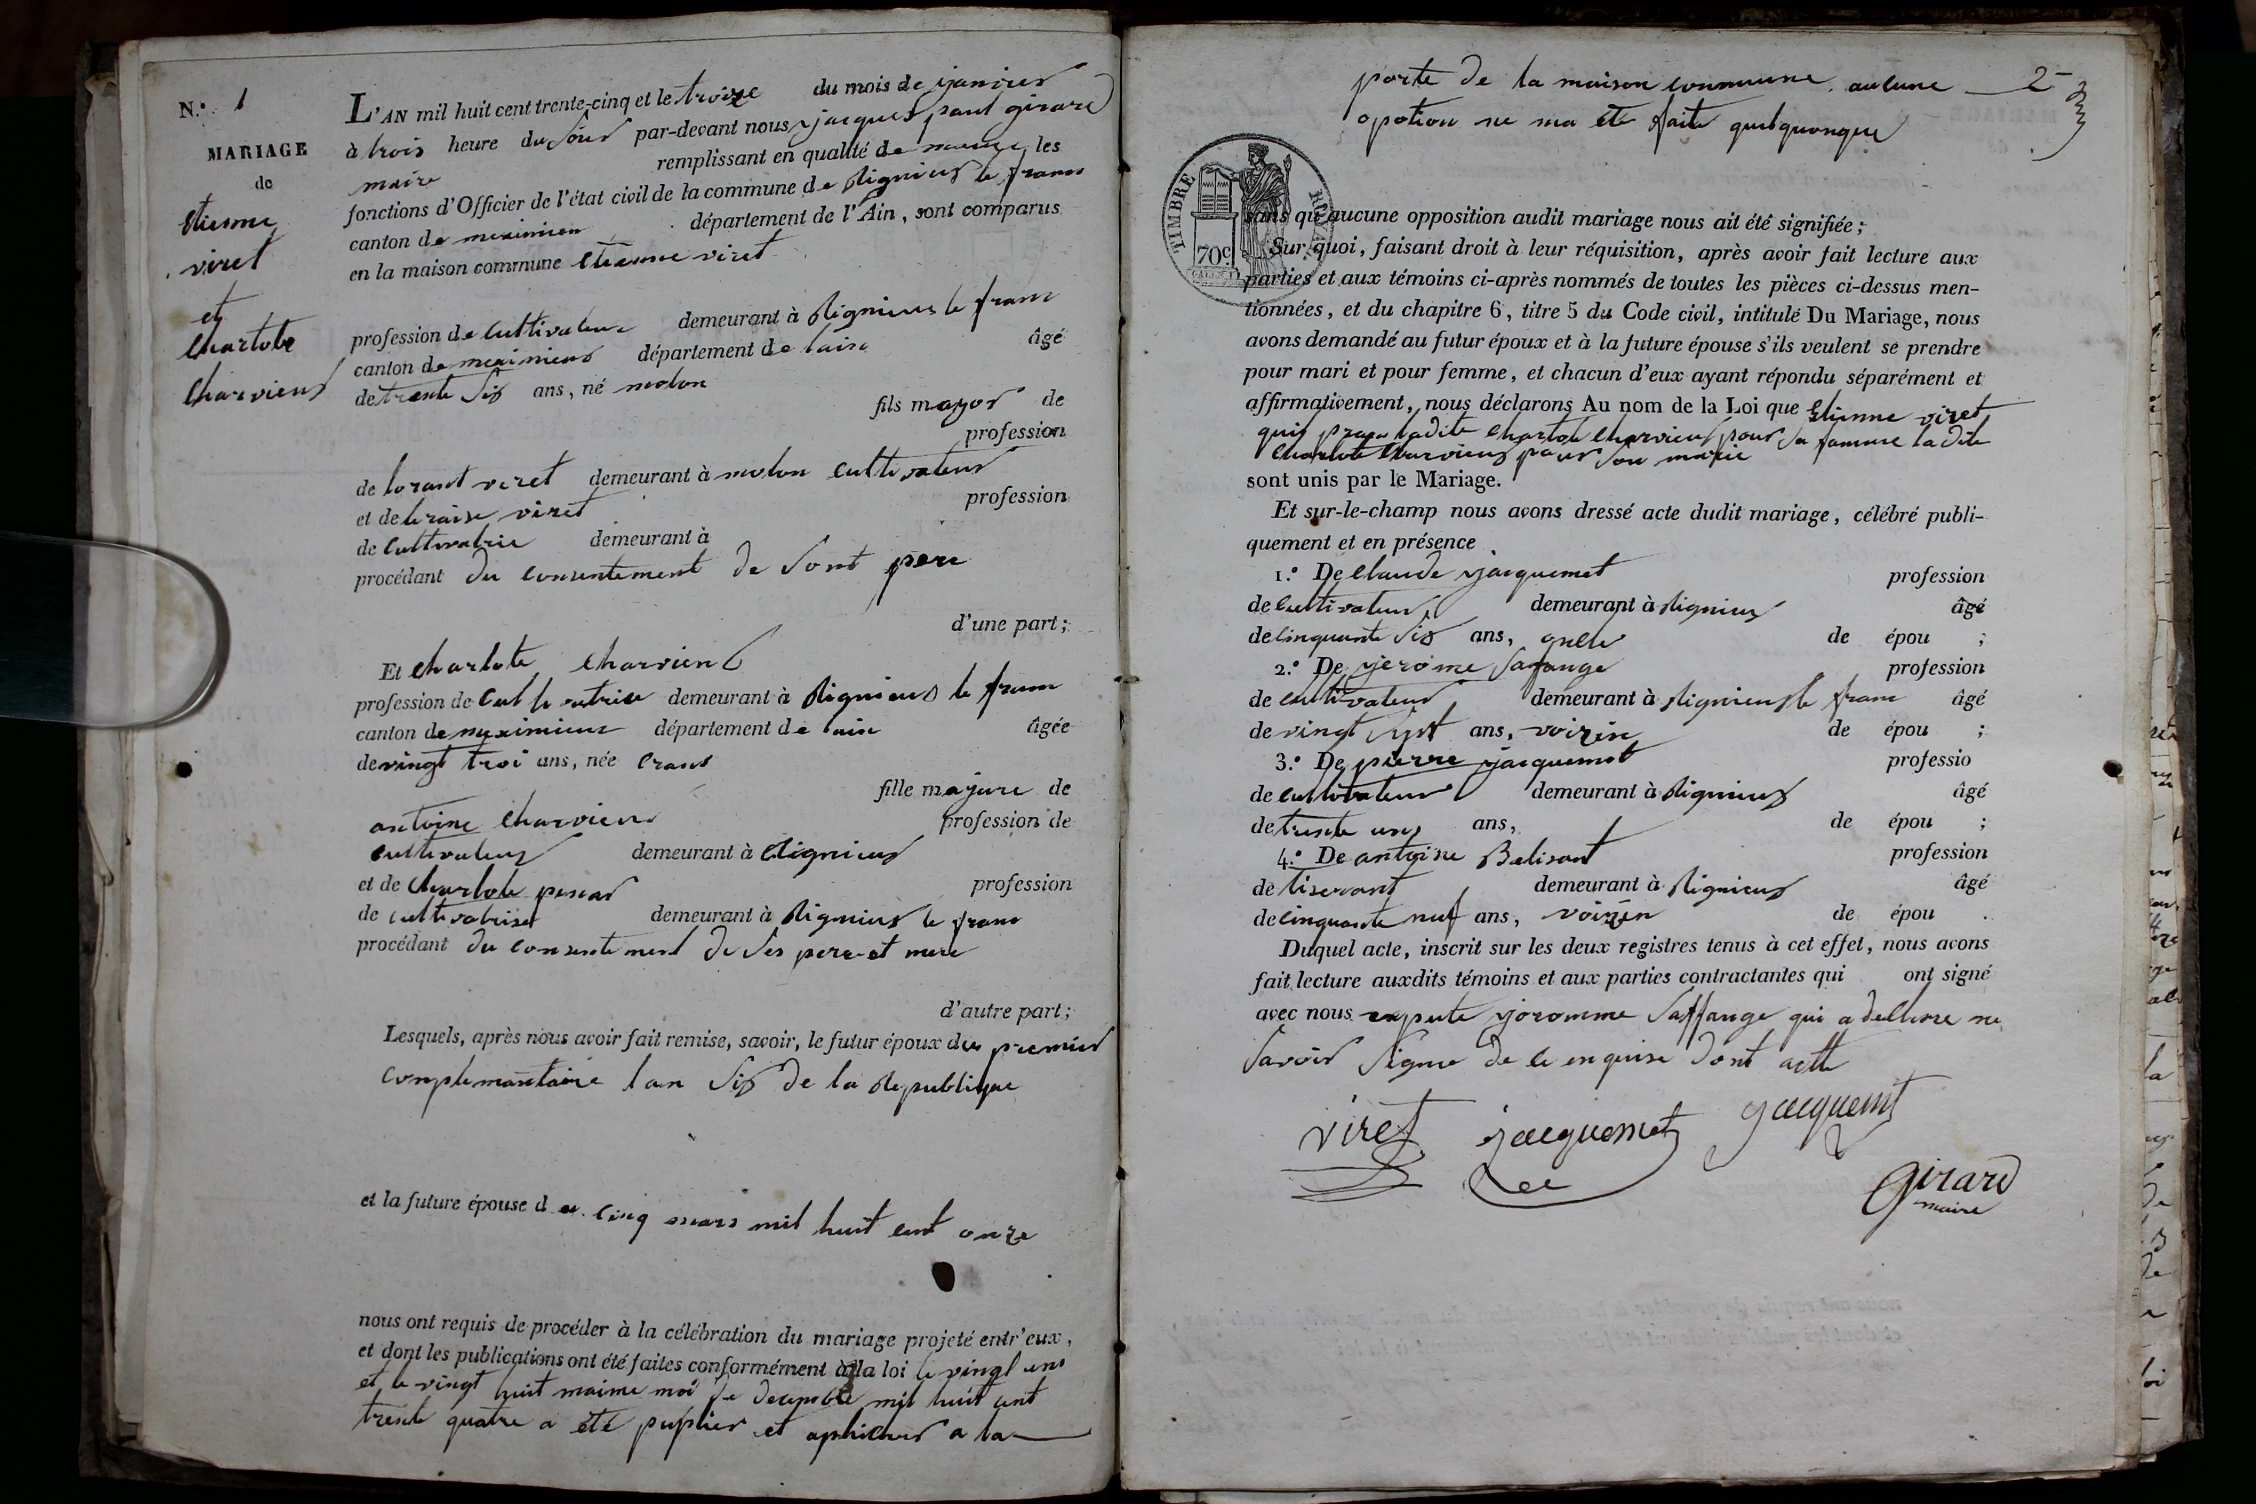 N.º 1
MARIAGE
de
etienne
viret
et
Charlote
Charvieux
L'AN mil huit cent trente-cinq et le troize du mois de ijanvier
à trois heure du soir par-devant nous ijacques paul girard
maire remplissant en qualité de maire les
fonctions d'Officier de l'état civil de la commune de Rignieux le franc
canton de meximieu département de l'Ain, sont comparus
en la maison commune etienne viret
profession de Cultivateur demeurant à Rignieux le franc
canton de meximieux département de laisn âgé
de trante six ans, né molon
fils mayor de
profession
de lorant viret demeurant à molon cultivateur
et de viret profession
de Cultivatrie demeurant à
procédant du consentement de sont pere
d'une part;
Et Charlote Charvieux
profession de Cultivatrice demeurant à Rignieux le franc
canton de meximieux département de lain âgée
de vingt troi ans, née Crans
fille majure de
antoine Charvieux profession de
cultivateur demeurant à Rignieux
et de Charlote profession
de cultivatrise demeurant à Rignieux le franc
procédant du consentement de ses pere et mere
d'autre part;
Lesquels, après nous avoir fait remise, savoir, le futur époux du premier
complemantaire lan six de la Republique
et la future épouse du cinq mars mil huit cent onze
nous ont requis de procéder à la célébration du mariage projeté entr'eux,
et dont les publications ont été faites conformément à la loi le vingt uns
et le vingt huit maime moi de decembre mil huit cent
trente quatre a été puplier et aphicher a la
porte de la maison commune aucune 2
opotion ne ma été faite quelquonque
TIMBRE ROYAL
70c.
sans qu'aucune opposition audit mariage nous ait été signifiée;
Sur quoi, faisant droit à leur réquisition, après avoir fait lecture aux
parties et aux témoins ci-après nommés de toutes les pièces ci-dessus men-
tionnées, et du chapitre 6, titre 5 du Code civil, intitulé Du Mariage, nous
avons demandé au futur époux et à la future épouse s'ils veulent se prendre
pour mari et pour femme, et chacun d'eux ayant répondu séparément et
affirmativement, nous déclarons Au nom de la Loi que Etienne viret
quis ladite Charlote Charvieux pour sa famme ladite
Charlote Charvieux pour son marie
sont unis par le Mariage.
Et sur-le-champ nous avons dressé acte dudit mariage, célébré publi-
quement et en présence
1.º De Claude ijacquemet profession
de Cultivateur demeurant à Rignieux âgé
de cinquante six ans, de épou ;
2.º De ijerome Safange profession
de cultivateur demeurant à Rignieux le franc âgé
de vingt sept ans, voizin de épou ;
3.º De pierre ijacquemet professio
de cultivateur demeurant à Rignieux âgé
de trente uns ans, de épou ;
4.º De antoine Belisant profession
de tiserant demeurant à Rignieux âgé
de cinquante neuf ans, voizin de épou .
Duquel acte, inscrit sur les deux registres tenus à cet effet, nous avons
fait lecture auxdits témoins et aux parties contractantes qui ont signé
avec nous expute ijoromme Saffange qui a delhore ne
savoir signe de ce enquise dont actte
viret jacquemet jacquemet
Girard
maire